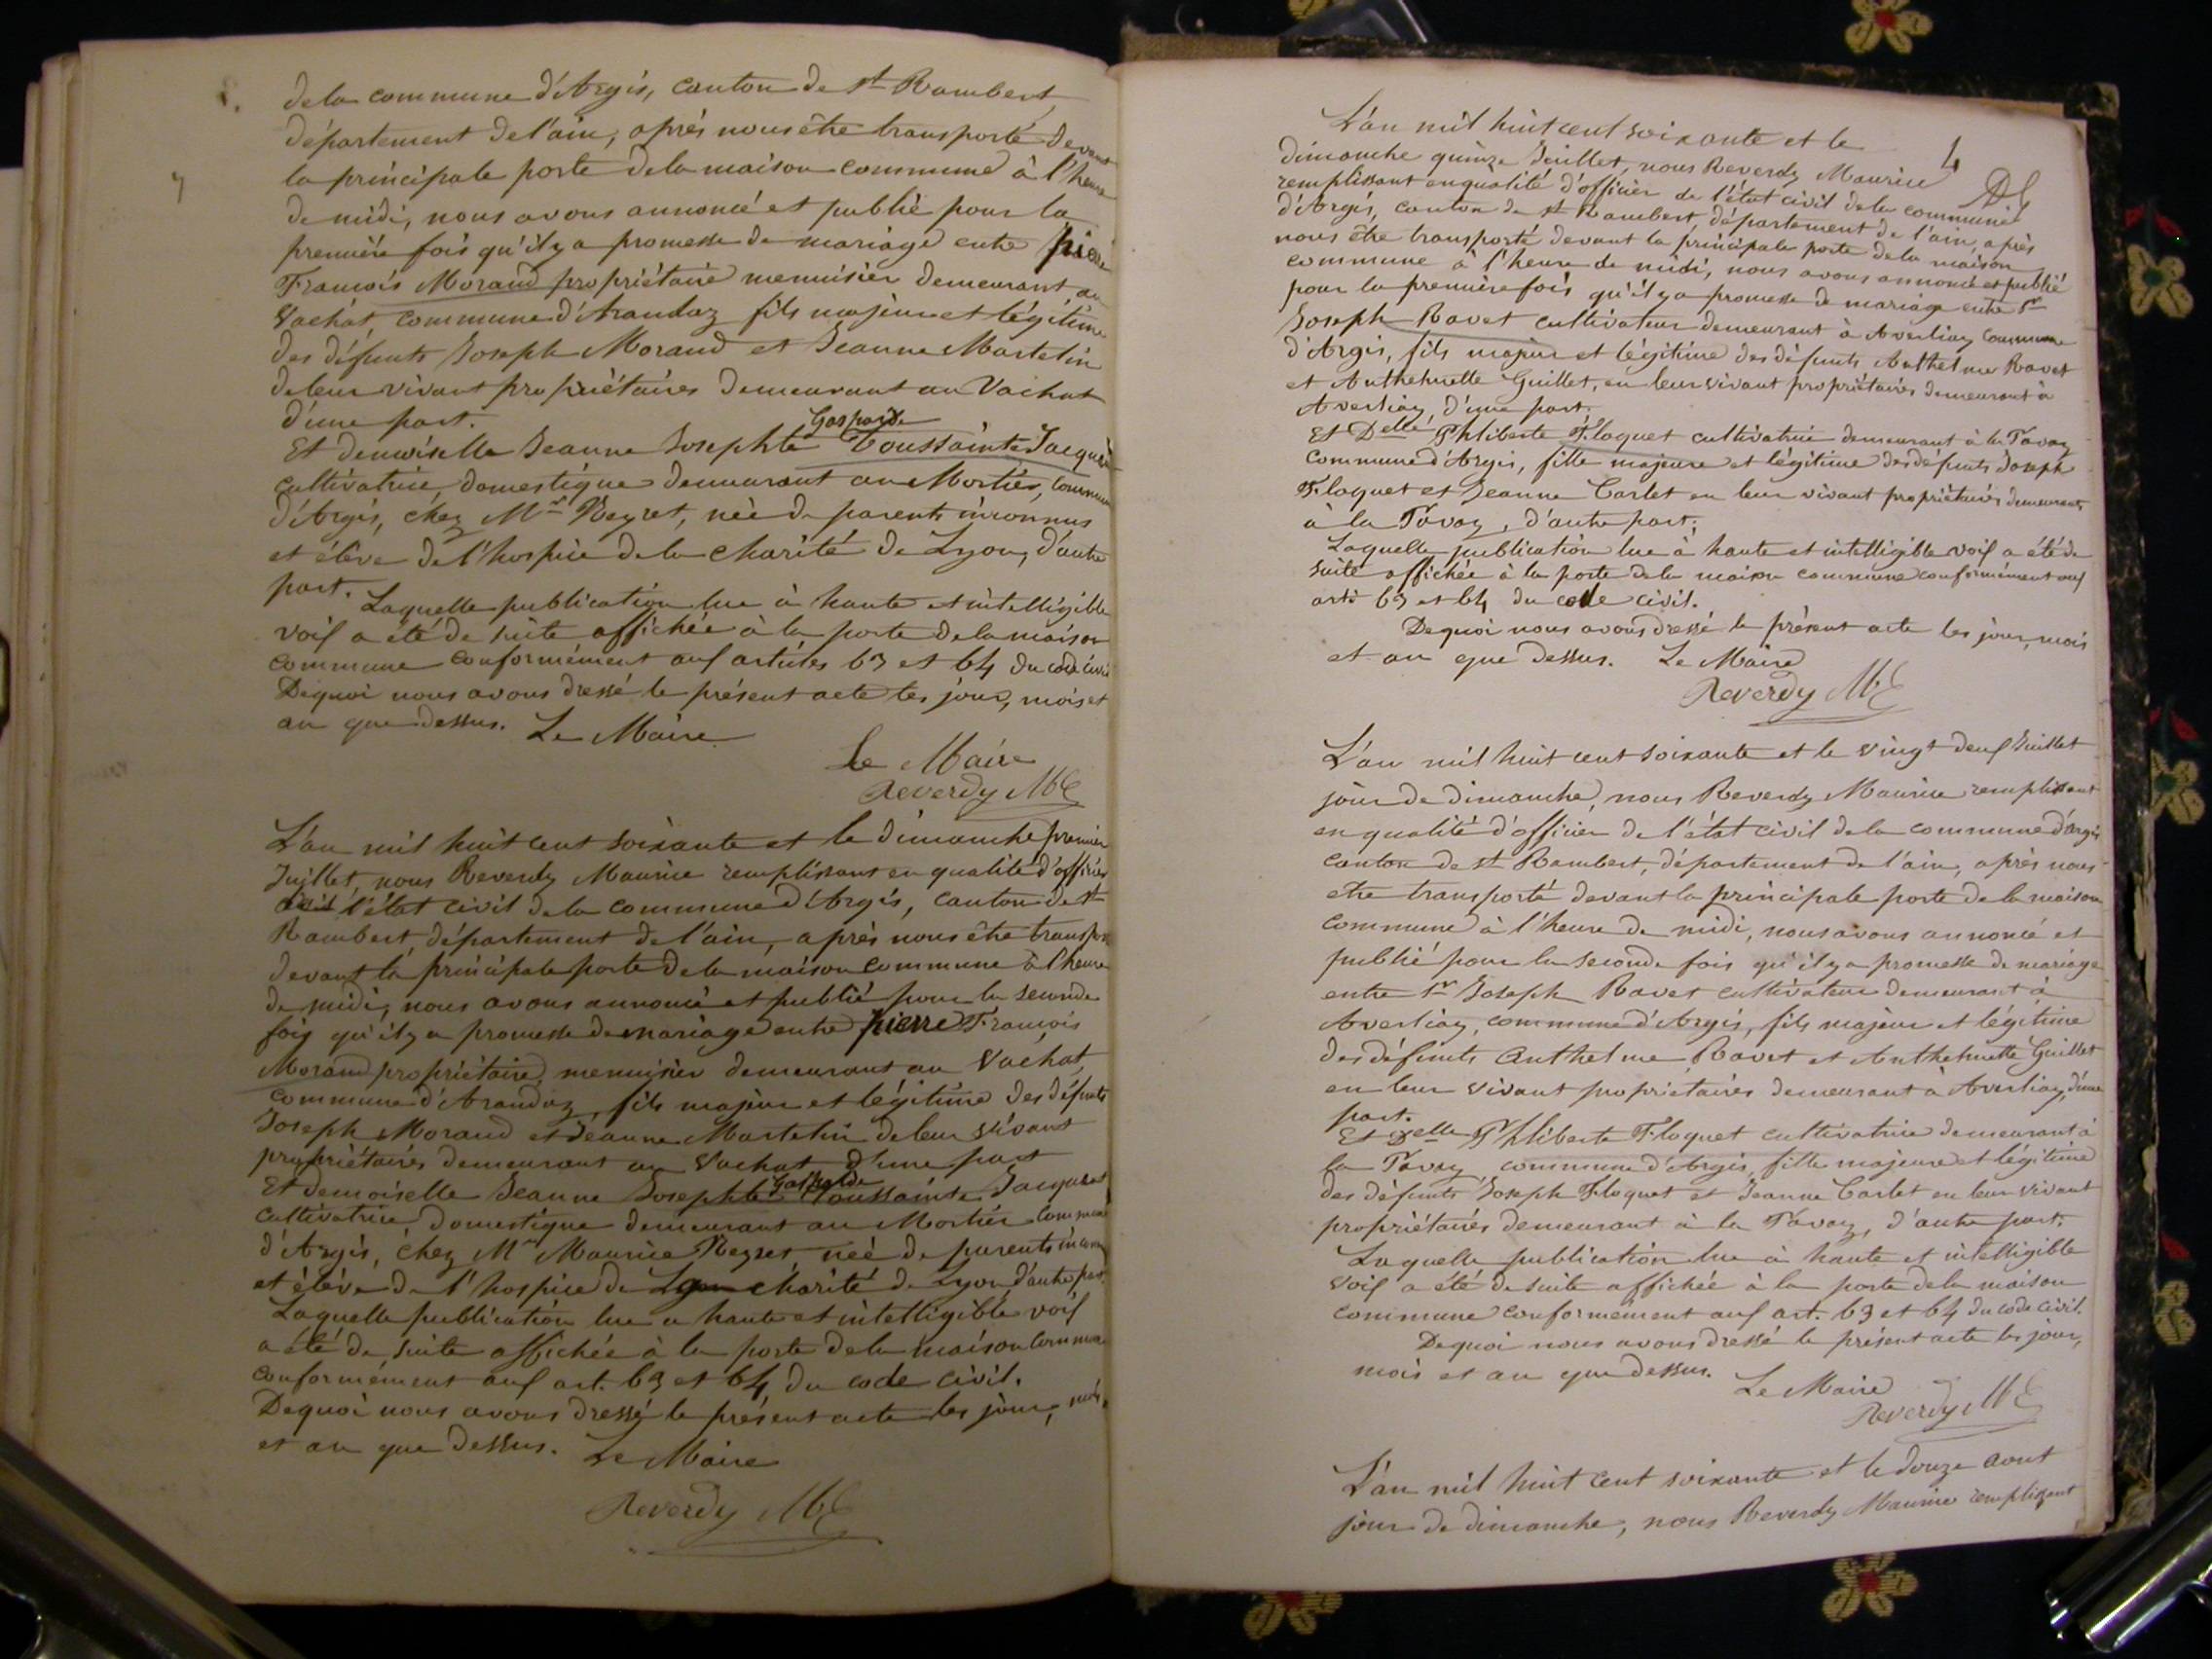 dela commune d'Argis, canton de st Rambert
département de l'ain, après nous être transporté devant
la principale porte dela maison commune à l'heure
de midi, nous avons annoncé et publié pour la
première fois qu'il y a promesse de mariage entre pierre
François Morand propriétaire menuisier demeurant au
Vachat, commune d'Arandaz fils majeur et légitime
des défunts Joseph Morand et Jeanne Martelin
de leur vivant propriétaires demeurant au Vachat
d'une part.
Gasparde
Et demoiselle Jeanne Josephte Toussainte Jacquet
cultivatrice, domestique demeurant au Mortier, commune
d'Argis, chez Mr Neyret, née de parents inconnus
et élève de l'hospice de la charité de Lyon, d'autre
part.
Laquelle publication lue à haute et intelligible
voix a été de suite affichée à la porte dela maison
commune conformément aux articles 63 et 64 du code civil
Dequoi nous avons dressé le présent acte les jour, mois et
an que dessus. Le Maire
Le Maire
Reverdy
L'an mil huit cent soixante et le dimanche premier
Juillet, nous Reverdy Maurice remplissant en qualité d'officier
l'état civil dela commune d'Argis, canton de st
Rambert, département de l'ain, après nous être transporté
devant la principale porte dela maison commune à l'heure
de midi, nous avons annoncé et publié pour la seconde
fois qu'il y a promesse de mariage entre pierre François
Morand propriétaire, menuisier demeurant au Vachat,
commune d'Arandaz, fils majeur et légitime des défunts
Joseph Morand et Jeanne Martelin de leur vivant
propriétaires demeurant au Vachat d'une part
Gasparde
Et demoiselle Jeanne Josephte Toussainte Jacquet
cultivatrice, domestique demeurant au Mortier commune
d'Argis, chez Mr Maurice Neyret, née de parents inconnus
et élève de l'hospice de Lyon charité de Lyon, d'autre part.
Laquelle publication lue a haute et intelligible voix
a été de suite affichée à la porte dela maison commune
conformément aux art. 63 et 64 du code civil.
Dequoi nous avons dressé le présent acte les jour, mois
et an que dessus. Le Maire
Reverdy
4
L'an mil huit cent soixante et le
dimanche quinze Juillet, nous Reverdy Maurice
remplissant en qualité d'officier de l'état civil dela commune
d'Argis, canton de st Rambert, département de l'ain, après
nous être transporté devant la principale porte dela maison
commune à l'heure de midi, nous avons annoncé et publié
pour la première fois qu'il y a promesse de mariage entre Sr
Joseph Ravet cultivateur demeurant à Averliaz commune
d'Argis, fils majeur et légitime des défunts Anthelme Ravet
et Anthelmette Guillet, en leur vivant propriétaires demeurant à
Averliaz, d'une part.
Et Delle Philiberte Floquet cultivatrice demeurant à la Tavaz
commune d'Argis, fille majeure et légitime des défunts Joseph
Floquet et Jeanne Carlet en leur vivant propriétaires demeurant
à la Tavaz, d'autre part.
Laquelle publication lue à haute et intelligible voix a été de
suite affichée à la porte dela maison commune conformément aux
arts 63 et 64 du code civil.
Dequoi nous avons dressé le présent acte les jour, mois
et an que dessus. Le Maire
Reverdy
L'an mil huit cent soixante et le vingt deux Juillet
jour de dimanche, nous Reverdy Maurice remplissant
en qualité d'officier de l'état civil dela commune d'Argis
canton de st Rambert, département de l'ain, après nous
etre transporté devant la principale porte de la maison
commune à l'heure de midi, nous avons annoncé et
publié pour la seconde fois qu'il y a promesse de mariage
entre Sr Joseph Ravet cultivateur demeurant à
Averliaz, commune d'Argis, fils majeur et légitime
des défunts Anthelme Ravet et Anthelmette Guillet
en leur vivant propriétaires demeurant à Averliaz, d'une
part.
Et Delle Philiberte Floquet cultivatrice demeurant à
la Tavaz commune d'Argis, fille majeure et légitime
des défunts Joseph Floquet et Jeanne Carlet en leur vivant
propriétaires demeurant à la Tavaz, d'autre part.
Laquelle publication lue à haute et intelligible
voix a été de suite affichée à la porte dela maison
commune conformément aux art. 63 et 64 du code civil.
Dequoi nous avons dressé le présent acte les jour,
mois et an que dessus.
Le Maire
Reverdy
L'an mil huit cent soixante et le douze aout
jour de dimanche, nous Reverdy Maurice remplissant